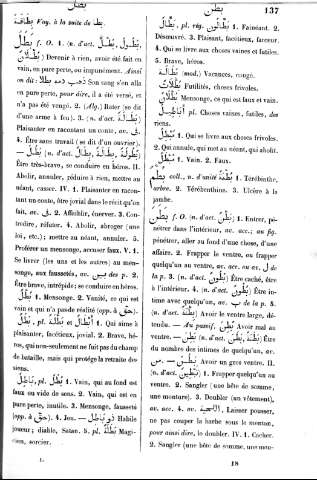 بطن
137
بطاقة Voy. à la suite de بط.
بطل f. O. 1. (n. d'act. بطل, بطول,
بطلان) Devenir à rien, avoir été fait en
vain, en pure perte, ou impunément. Ainsi
on dit: ذهب دمه بطلا Son sang s'en alla
en pure perte, pour dire, il a été versé, et
n'a pas été vengé. 2. (Alg.) Rater (se dit
d'une arme à feu). 3. (n. d'act. بطالة)
Plaisanter en racontant un conte, av. في.
4. Être sans travail (se dit d'un ouvrier).
بطل — (n. d'act. بطالة, بطولة)
Être très-brave, se conduire en héros. II.
Abolir, annuler, réduire à rien, mettre au
néant, casser. IV. 1. Plaisanter en racon-
tant un conte, être jovial dans le récit qu'on
fait, av. في. 2. Affaiblir, énerver. 3. Con-
tredire, réfuter. 4. Abolir, abroger (une
loi, etc.); mettre au néant, annuler. 5.
Proférer un mensonge, accuser faux. V. 1.
Se livrer (les uns et les autres) au men-
songe, aux faussetés, av. بين des p. 2.
Être brave, intrépide; se conduire en héros.
بطل 1. Mensonge. 2. Vanité, ce qui est
vain et qui n'a pas de réalité (opp. à حق).
بطل, pl. أبطال 1. Qui aime à
plaisanter, facétieux, jovial. 2. Brave, hé-
ros, qui non-seulement ne fuit pas du champ
de bataille, mais qui protége la retraite des
siens.
باطل, pl. أباطيل 1. Vain, qui au fond est
faux ou vide de sens. 2. Vain, qui est en
pure perte, inutile. 3. Mensonge, fausseté
(opp. à حق). 4. Jeu. — ذو باطل Habile
joueur; diable, Satan. 5. pl. بطلة Magi-
cien, sorcier.
I.
بطال, pl. rég. بطالون 1. Fainéant. 2.
Désœuvré. 3. Plaisant, facétieux, farceur.
4. Qui se livre aux choses vaines et futiles.
5. Brave, héros.
بطالة (mod.) Vacances, congé.
بطالات Futilités, choses frivoles.
Mensonge, ce qui est faux et vain.
أباطيل pl. Choses vaines, futiles, des
riens.
1. Qui se livre aux choses frivoles.
2. Qui annule, qui met au néant, qui abolit.
1. Vain. 2. Faux.
بطم coll., n. d'unité بطمة 1. Térébinthe,
arbre. 2. Térébenthine. 3. Ulcère à la
jambe.
بطن f. O. (n. d'act. بطن) 1. Entrer, pé-
nétrer dans l'intérieur, av. acc.; au fig.
pénétrer, aller au fond d'une chose, d'une
affaire. 2. Frapper le ventre, ou frapper
quelqu'un au ventre, av. acc. ou av. ل de
la p. 3. (n. d'act. بطون) Être caché, être
à l'intérieur. 4. (n. d'act. بطون) Être in-
time avec quelqu'un, av. ب de la p. 5.
(n. d'act. بطن) Avoir le ventre large, dé-
tendu. — Au passif, بطن Avoir mal au
ventre. — بطن (n. d'act. بطانة) Être
du nombre des intimes de quelqu'un, av.
من. — بطن Avoir un gros ventre. II.
(n. d'act. تبطين) 1. Frapper quelqu'un au
ventre. 2. Sangler (une bête de somme,
une monture). 3. Doubler (un vêtement),
av. acc. 4. av. اللحية, Laisser pousser,
ne pas couper la barbe sous le menton,
pour ainsi dire, la doubler. IV. 1. Cacher.
2. Sangler (une bête de somme, une mon-
18